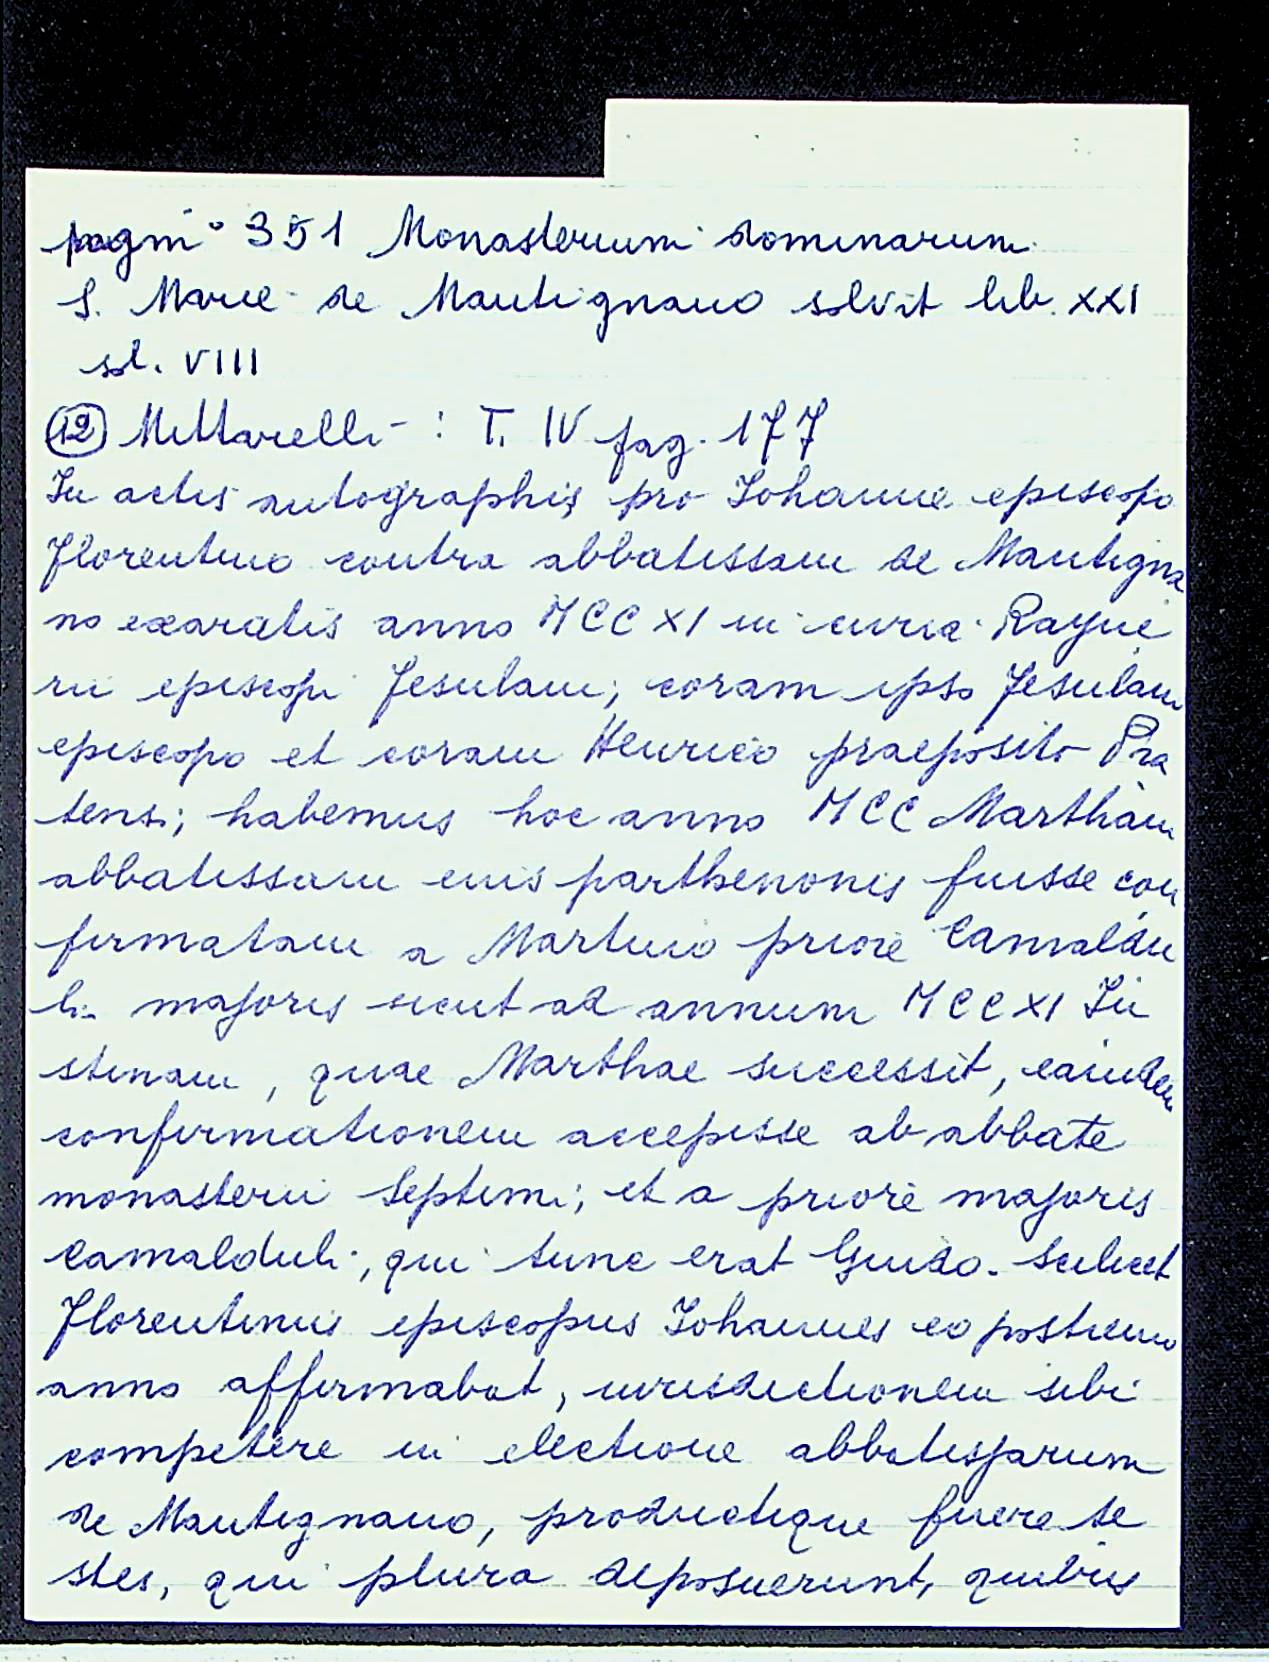 pagin° 351 Monasterium dominarum
S. Marie de Mantignano solvit lib. XXI
sol. VIII
(12) Mittarelli : T. IV pag. 177
In actis autographis pro Iohanne episcopo
Florentino contra abbatissam de Mantigna
no exaratis anno MCCXI in curia Rayne
rii episcopi Fesulani; coram ipso Fesulan
episcopo et coram Henrico praeposito Pra
tensi; habemus hoc anno MCC Martham
abbatissam eius parthenonis fuisse con
firmatam a Martino priore Camaldu
li majoris sicut ad annum MCCXI Iu
stinam, quae Marthae successit, eamdem
confirmationem accepisse ab abbate
monasterii Septimi; et a priore majoris
Camalduli; qui tunc erat Guido. Scilicet
Florentinus episcopus Iohannes eo postremo
anno affirmabat, iurisdictionem sibi
competere in electione abbatissarum
de Mantignano, productique fuere te
stes, qui plura deposuerunt, quibus